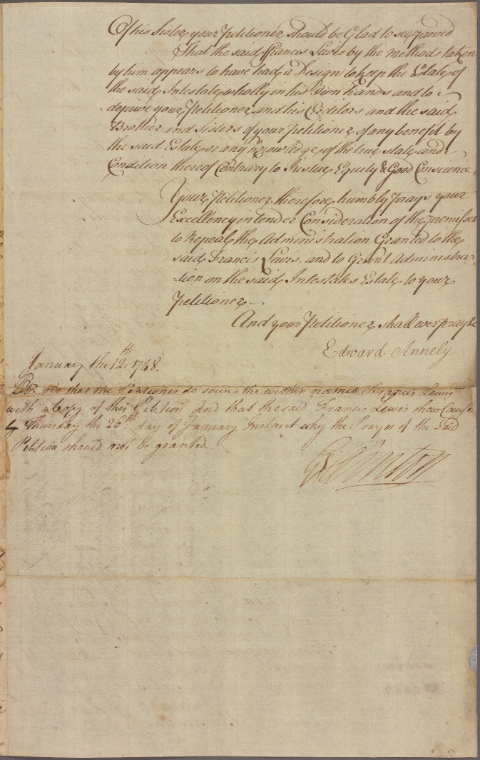 Of his Sister your Petitioner should be Glad to see
That the said Francis Lewis by the methods taken
by him appears to have had a Design to keep the Estate of
the said Intestate wholly in his own hands and to
deprive your Petitioner and his Creditors and the said
Brother and Sisters of your Petitioner of any benefit by
the said Estate or any knowledge of the true state and
Condition thereof Contrary to Justice Equity & Good Conscience
Your Petitioner therefore humbly prays your
Excellency in tender Consideration of the premises
to Repeal the Administration Granted to the
said Francis Lewis and to Grant Administra-
-tion on the said Intestates Estate to your
Petitioner
And your Petitioner shall ever pray &c
Edward Annely
January the 12th. 1748.
that the Petitioner do serve the within named Francis Lewis
with a Copy of this Petition and that the said Francis Lewis shew Cause
by Thursday the 26th day of January Instant why the Prayer of the said
Petition should not be granted
G Clinton